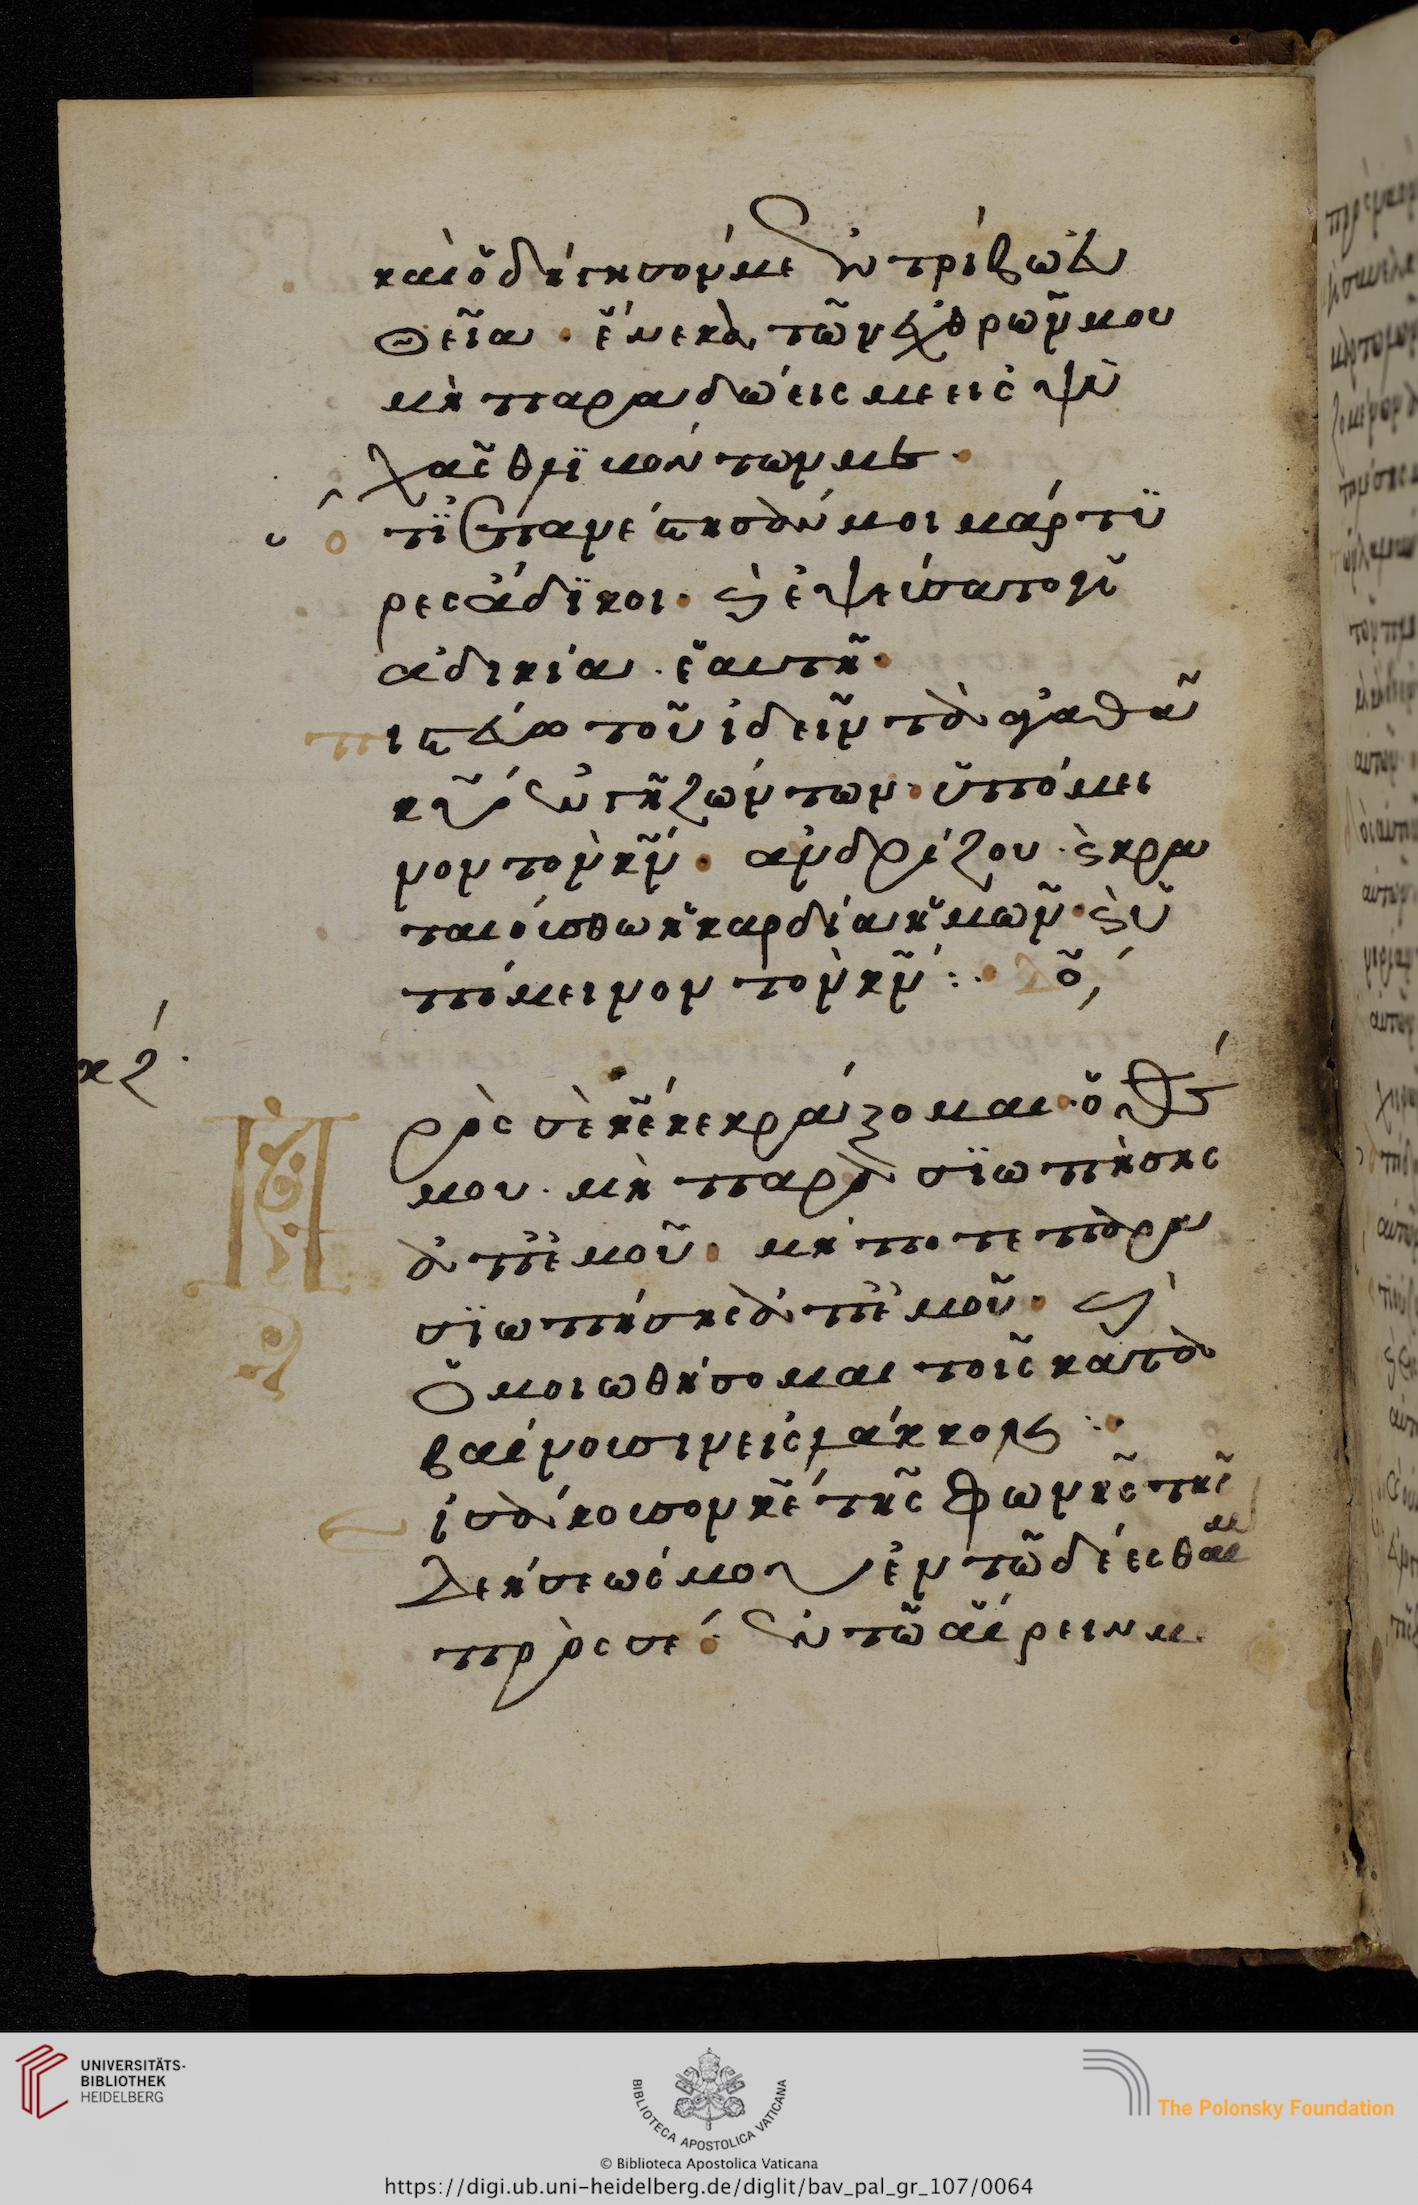 καὶ ὁδήγησόν με ἐν τρίβω εὐ
θεῖα· ἕνεκα τῶν ἐχθρῶν μου
μὴ παραδώεις με εἰς ψυ
χὰς θλϊβόντων με·
ὅτϊ ἐπανέστησάν μοι μάρτϋ
ρες ἄδϊκοι· καὶ ἐψεύσατο ἡ
ἀδικία ἑαυτῆ·
πιστεύω τοῦ ἰδεῖν τὰ ἀγαθὰ
κυ ἐν γῆ ζώντων· ὑπόμει
νον τὸν κν· ἀνδρίζου καὶ κρα
ταιούσθω ἡ καρδία ἡμῶν· καὶ ὑ
πόμεινον τὸν κν:·
κζ
Πρὸς σὲ κε κεκράξομαι ὁ θς
μου· μὴ παρα σϊωπήσης
ἀπ' ἐμοῦ· μή ποτε παρα
σϊωπήσης ἀπ' ἐμοῦ· καὶ
ὁμοιωθήσομαι τοῖς κατα
βαίνουσιν εἰς λάκκον:·
εἰσάκουσον κε τῆς φωνῆς τῆς
δεήσεώς μου ἐν τῶ δέεσθαί με
πρὸς σέ· ἐν τῶ αἴρειν με
UNIVERSITÄTS-
BIBLIOTHEK
HEIDELBERG
BIBLIOTECA APOSTOLICA VATICANA
The Polonsky Foundation
© Biblioteca Apostolica Vaticana
https://digi.ub.uni-heidelberg.de/diglit/bav_pal_gr_107/0064